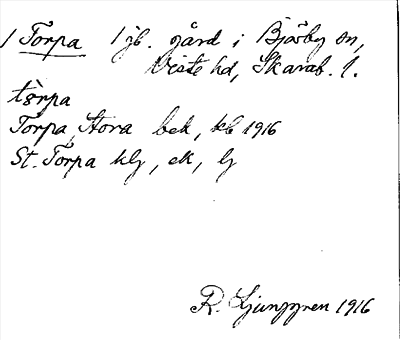 1 Torpa 1 jb. gård i Bjärby sn,
Viste hd, Skarab. l.
tɔ̀rpa
Torpa, Stora bek, kb 1916
St. Torpa klj, ek, lj
R. Ljunggren 1916